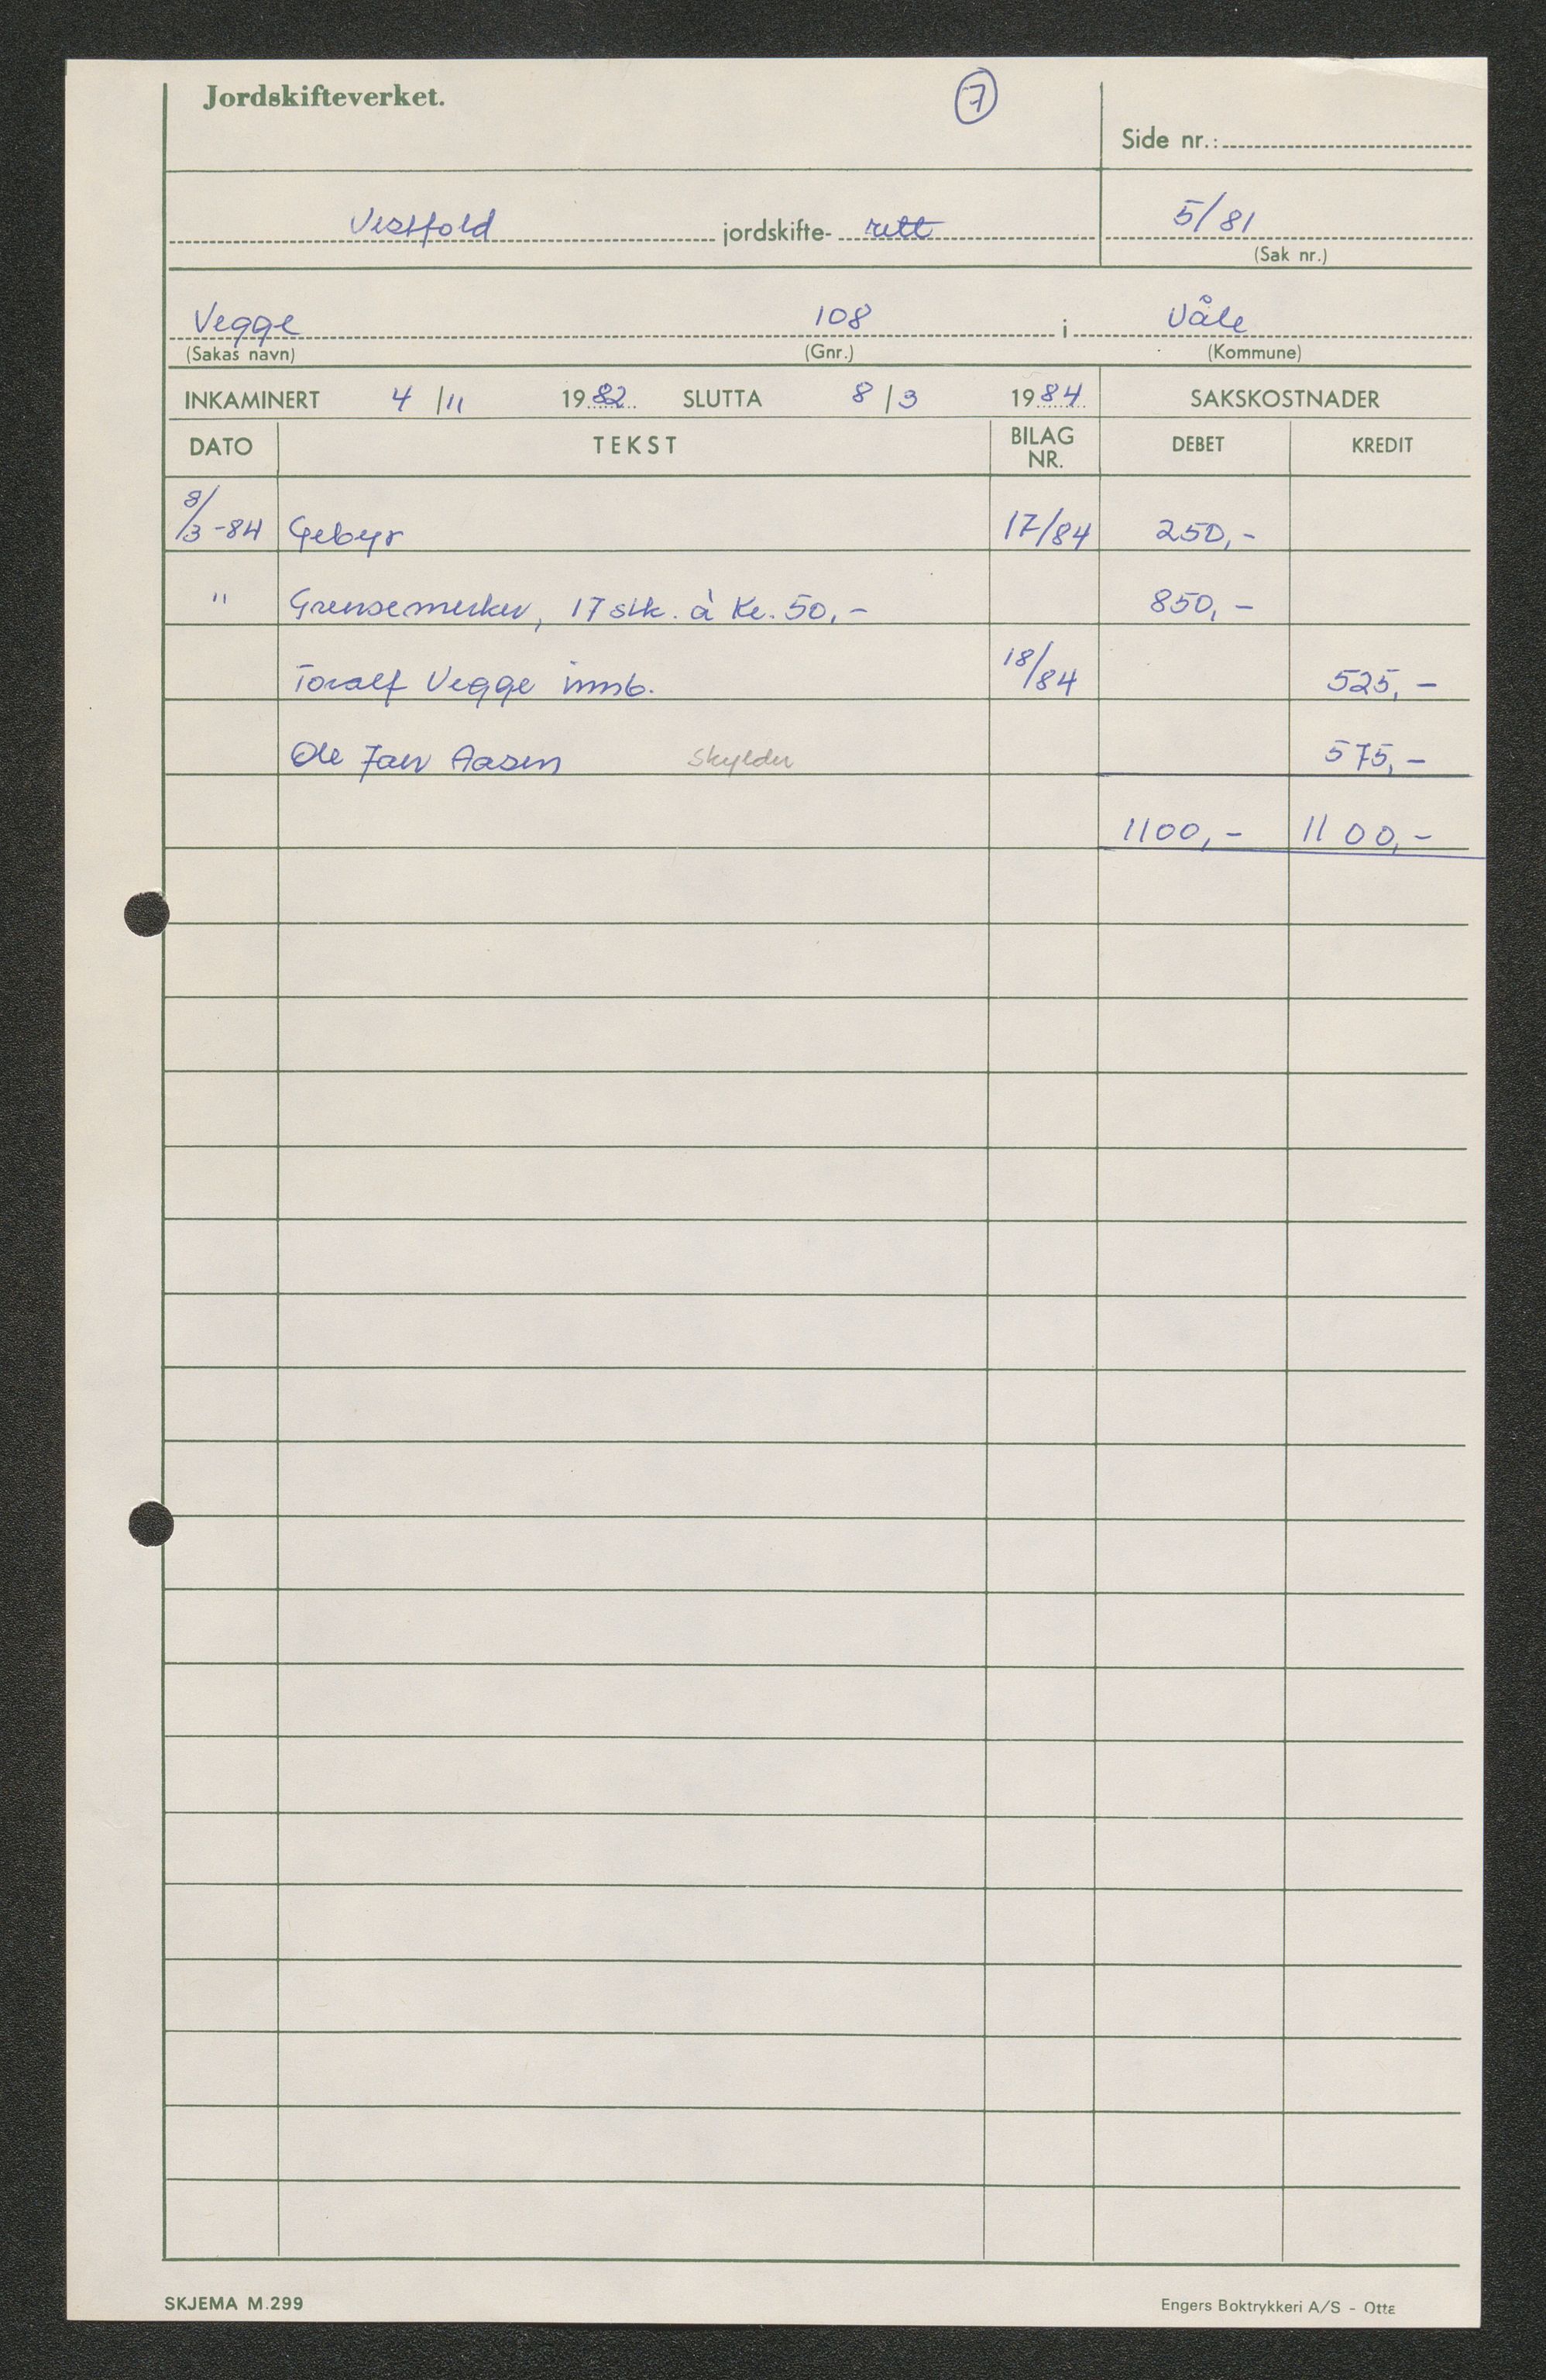 Jordskifteverket.
7
Side nr.:
Vestfold jordskifte- rett
5/81
(Sak nr.)
Vegge 108 i Våle
(Sakas navn) (Gnr.) (Kommune)
INKAMINERT 4/11 1982 SLUTTA 8/3 1984 SAKSKOSTNADER
DATO TEKST BILAG NR. DEBET KREDIT
8/3-84 Gebyr 17/84 250,-
" Grensemerker, 17 stk. à Kr. 50,- 850,-
Toralf Vegge innb. 18/84 525,-
Ole Jan Aasen skylder 575,-
1100,- 1100,-
SKJEMA M.299 Engers Boktrykkeri A/S - Otta